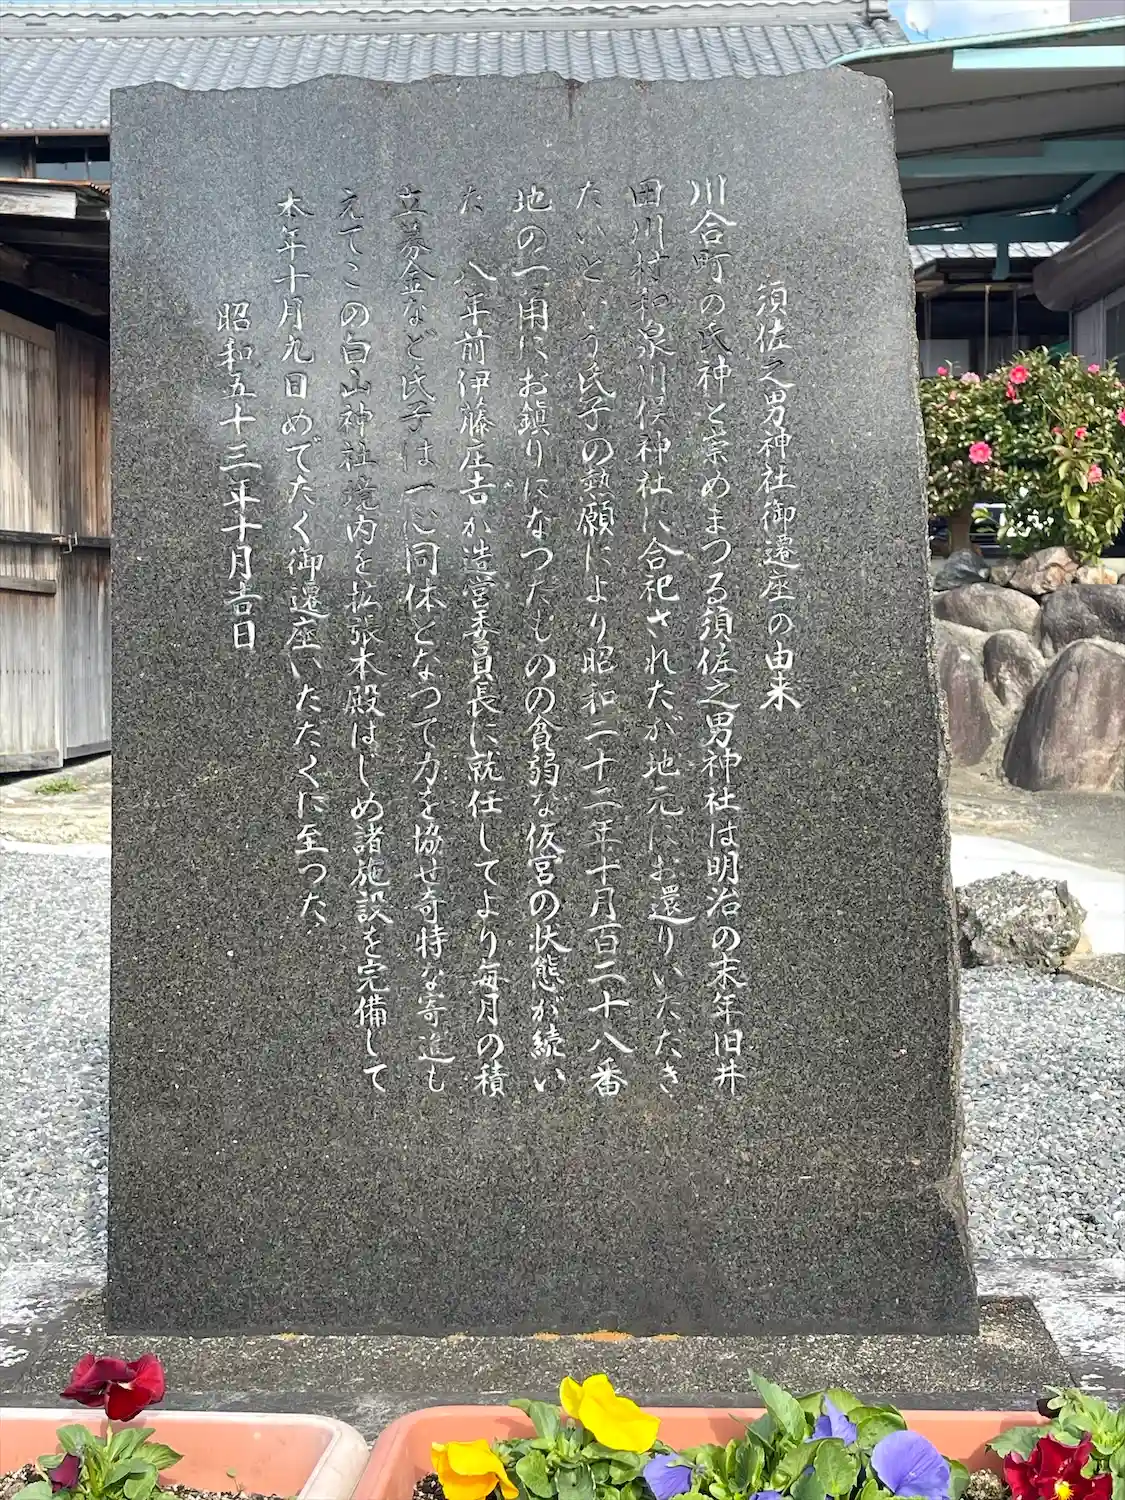 須佐之男神社御遷座の由来
川合町の氏神と崇めまつる須佐之男神社は明治の末年旧井
田川村和泉川俣神社に合祀されたが地元にお還りいたたき
たいという氏子の熱願により昭和二十二年十月百二十八番
地の一角にお鎮りになつたものの貧弱な仮宮の状態が続い
た 八年前伊藤庄吉が造営委員長に就任してより毎月の積
立募金など氏子は一心同体となつて力を協せ奇特な寄進も
えてこの白山神社境内を拡張本殿はじめ諸施設を完備して
本年十月九日めでたく御遷座いたたくに至つた
昭和五十三年十月吉日